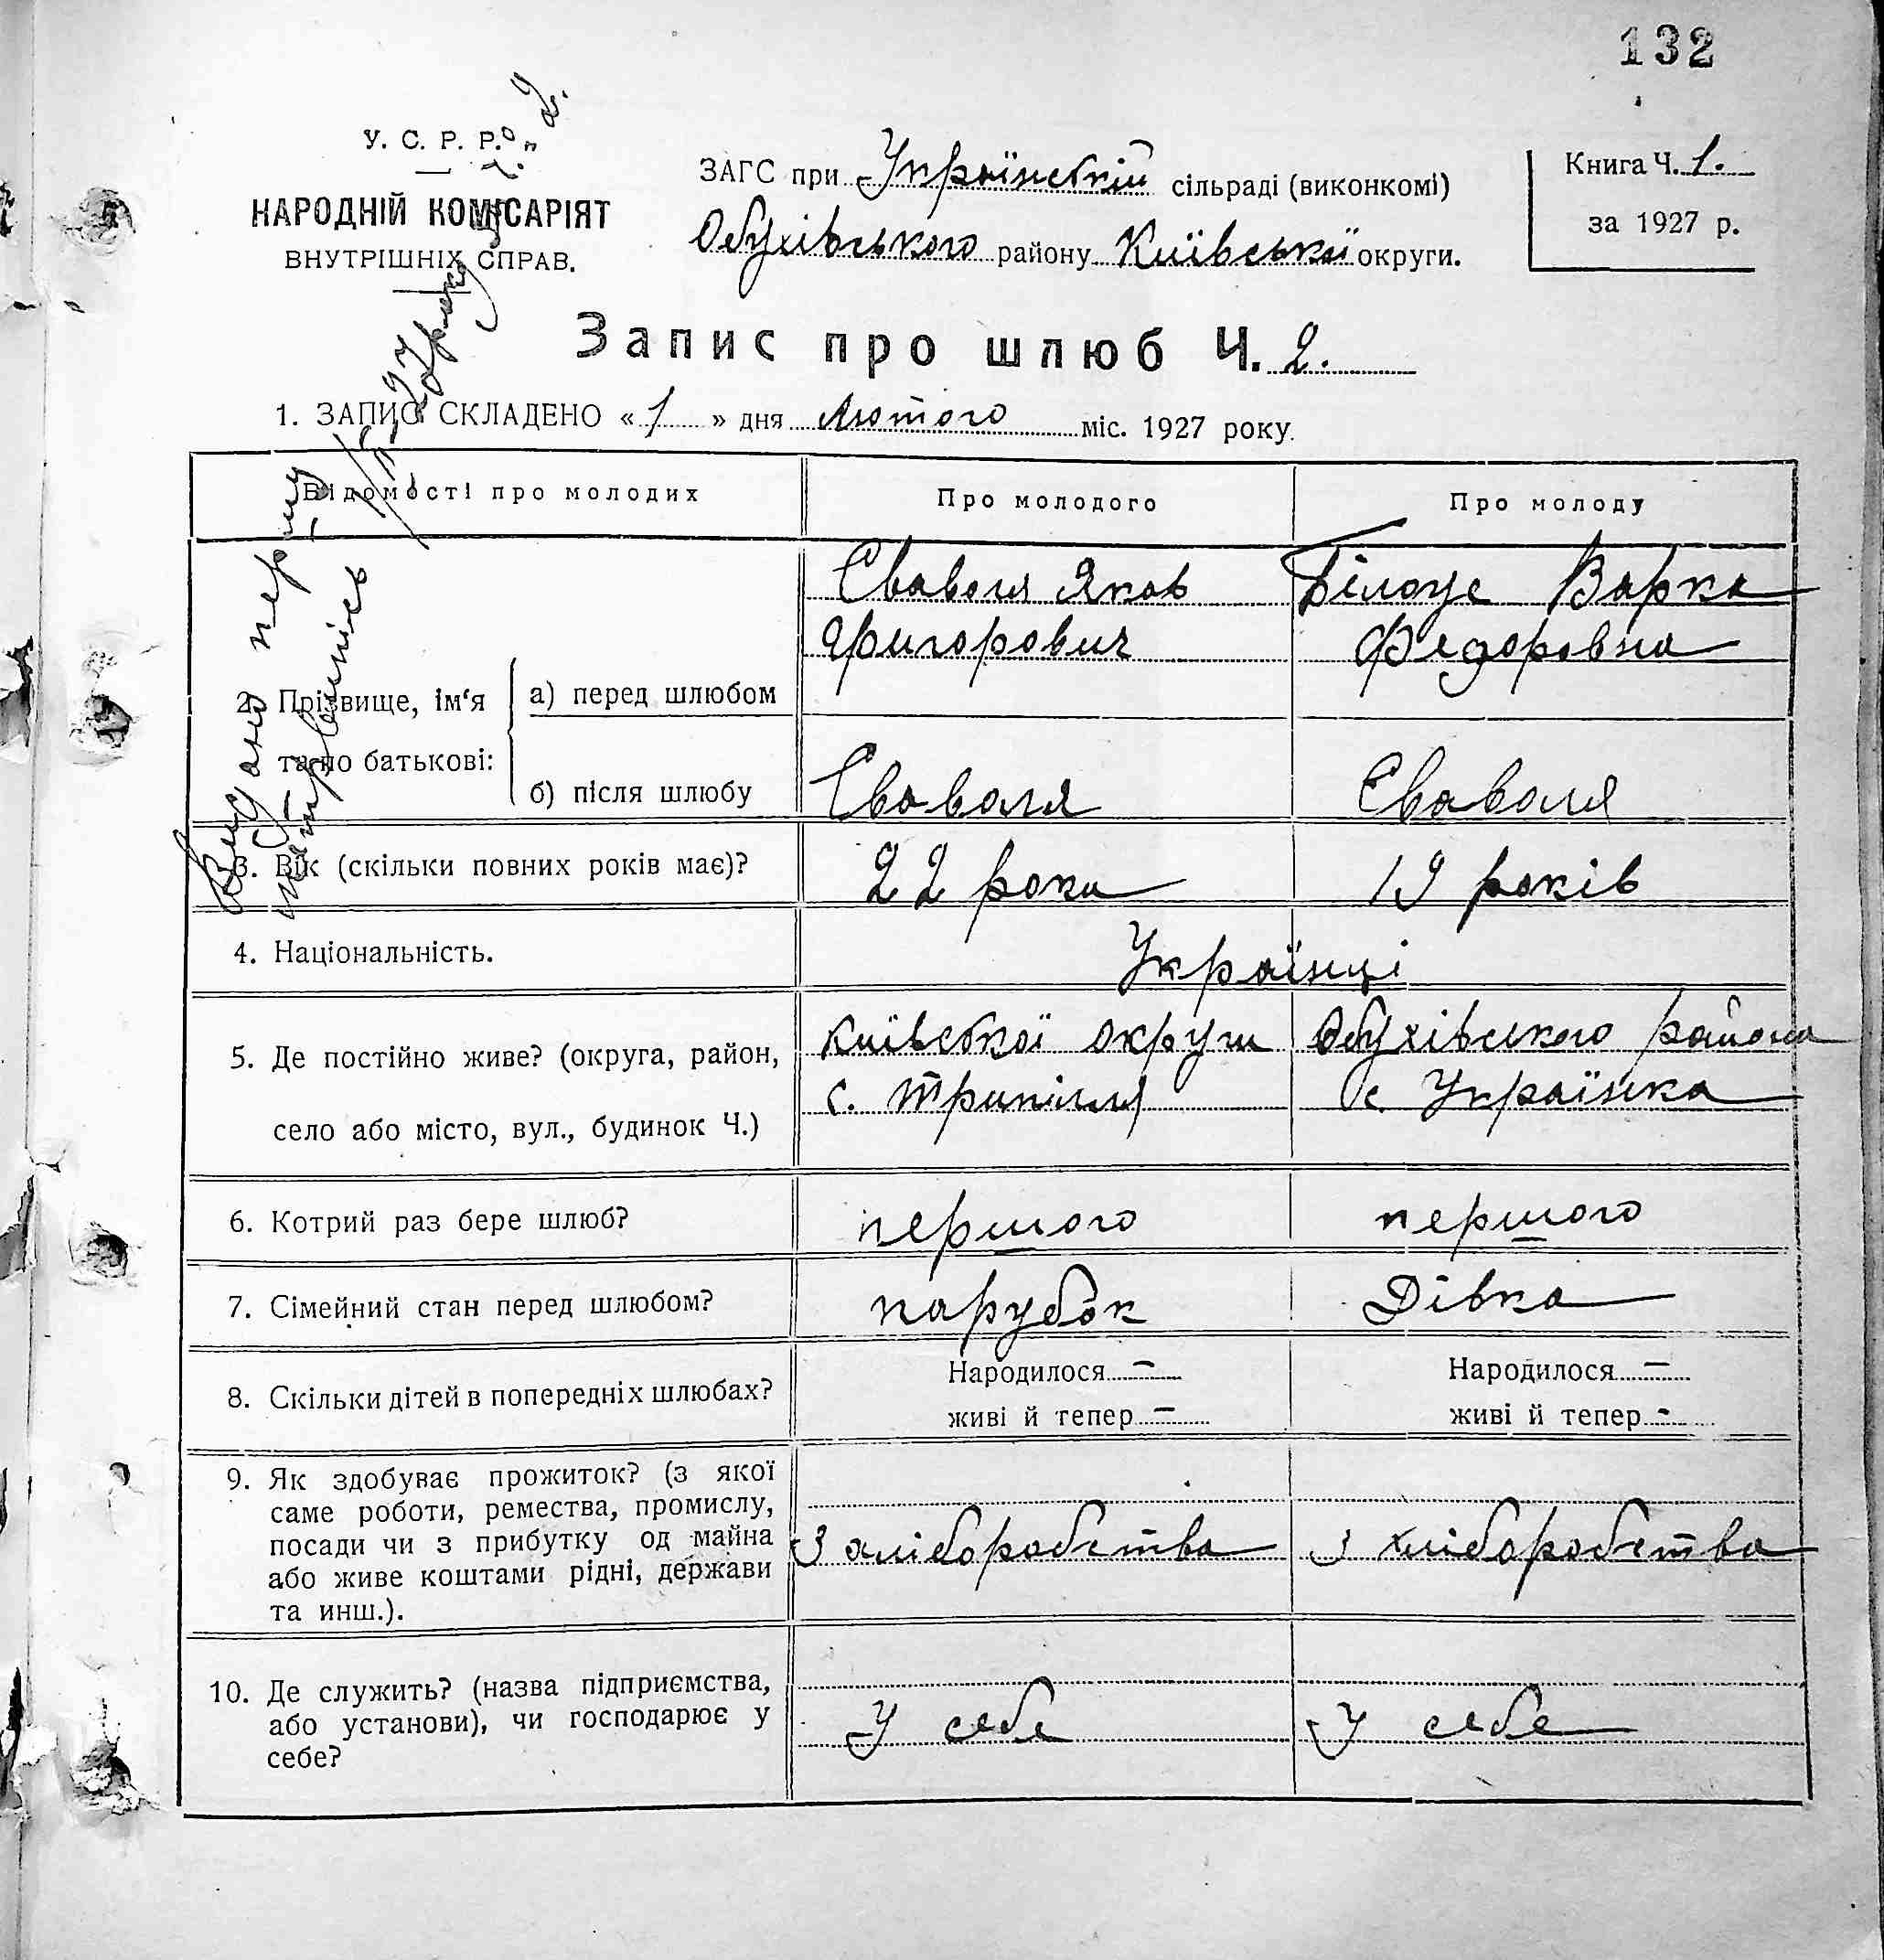 132
У. С. Р. Р.
НАРОДНІЙ КОМІСАРІЯТ
ВНУТРІШНІХ СПРАВ.
ЗАГС при Українській сільраді (виконкомі)
Обухівського району Київської округи.
Книга Ч. 1.
за 1927 р.
Запис про шлюб Ч. 2.
1. ЗАПИС СКЛАДЕНО « 1 » дня Лютого міс. 1927 року.
Видано першу
Відомості про молодих Про молодого Про молоду
2. Прізвище, ім‘я та по батькові:
а) перед шлюбом
Сваволя Яков Білоус Варка
Григорович Федоровна
б) після шлюбу Сваволя Сваволя
3. Вік (скільки повних років має)? 22 роки 19 років
4. Національність. Українці
5. Де постійно живе? (округа, район, Київської округи Обухівського района
село або місто, вул., будинок Ч.) с. Трипілля с. Українка
6. Котрий раз бере шлюб? першого першого
7. Сімейний стан перед шлюбом? парубок Дівка
8. Скільки дітей в попередніх шлюбах? Народилося — Народилося —
живі й тепер — живі й тепер -
9. Як здобуває прожиток? (з якої
саме роботи, ремества, промислу,
посади чи з прибутку од майна З хліборобства З хліборобства
або живе коштами рідні, держави
та инш.).
10. Де служить? (назва підприємства,
або установи), чи господарює у У себе У себе
себе?